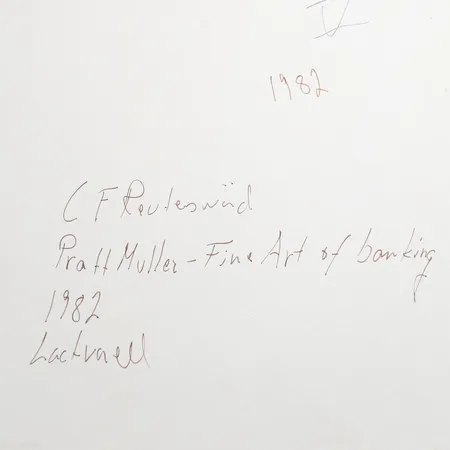 IV
1982
C F Reuterswärd
Pratt Muller - Fine Art of banking
1982